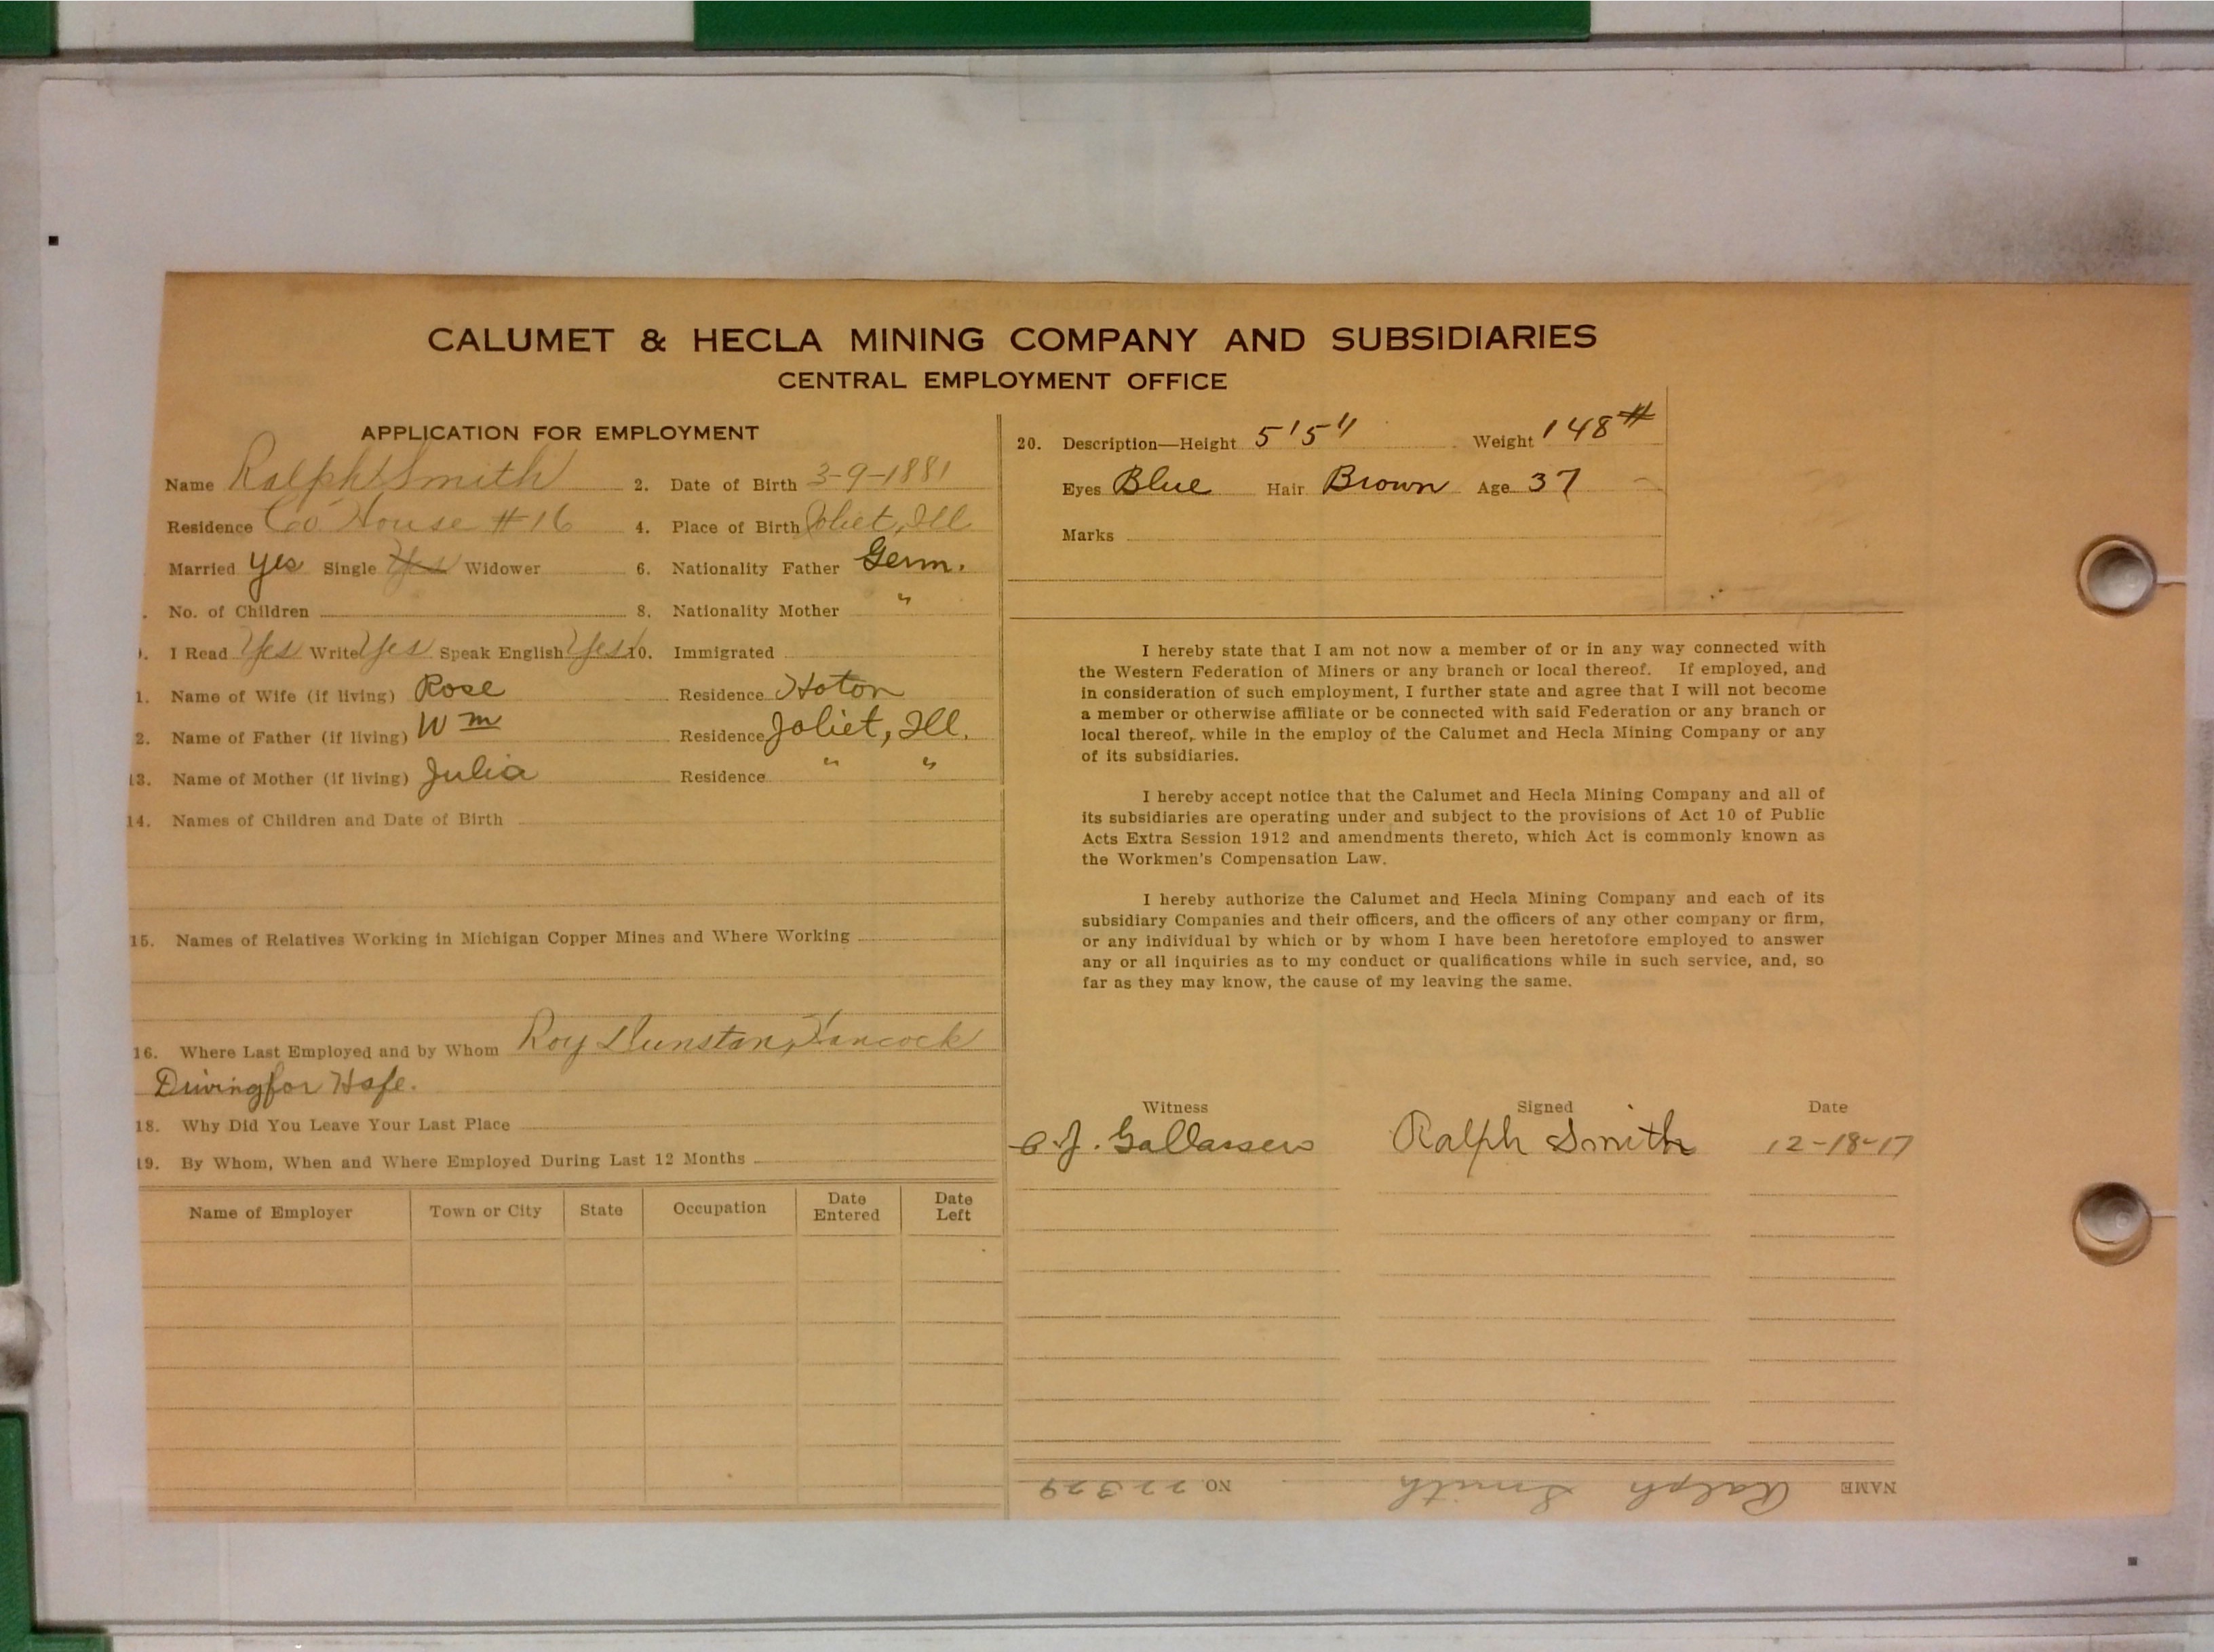 CALUMET & HECLA MINING COMPANY AND SUBSIDIARIES
CENTRAL EMPLOYMENT OFFICE
APPLICATION FOR EMPLOYMENT
Name Ralph Smith 2. Date of Birth 3-9-1881
Residence Co. House #16 4. Place of Birth Joliet, Ill
Married Yes Single Yes Widower 6. Nationality Father Germ.
No. of Children 8. Nationality Mother "
I Read Yes Write Yes Speak English Yes 10. Immigrated
1. Name of Wife (if living) Rose Residence Hoton
2. Name of Father (if living) Wm Residence Joliet, Ill.
13. Name of Mother (if living) Julia Residence " "
14. Names of Children and Date of Birth
15. Names of Relatives Working in Michigan Copper Mines and Where Working
16. Where Last Employed and by Whom Roy Dunstan, Hancock
Driving for Hafe.
18. Why Did You Leave Your Last Place
19. By Whom, When and Where Employed During Last 12 Months
Name of Employer Town or City State Occupation Date Entered Date Left
20. Description—Height 5'5" Weight 148#
Eyes Blue Hair Brown Age 37
Marks
I hereby state that I am not now a member of or in any way connected with
the Western Federation of Miners or any branch or local thereof. If employed, and
in consideration of such employment, I further state and agree that I will not become
a member or otherwise affiliate or be connected with said Federation or any branch or
local thereof, while in the employ of the Calumet and Hecla Mining Company or any
of its subsidiaries.
I hereby accept notice that the Calumet and Hecla Mining Company and all of
its subsidiaries are operating under and subject to the provisions of Act 10 of Public
Acts Extra Session 1912 and amendments thereto, which Act is commonly known as
the Workmen's Compensation Law.
I hereby authorize the Calumet and Hecla Mining Company and each of its
subsidiary Companies and their officers, and the officers of any other company or firm,
or any individual by which or by whom I have been heretofore employed to answer
any or all inquiries as to my conduct or qualifications while in such service, and, so
far as they may know, the cause of my leaving the same.
Witness Signed Date
J. Ralph Smith 12-18-17
NAME Ralph Smith NO. 22329